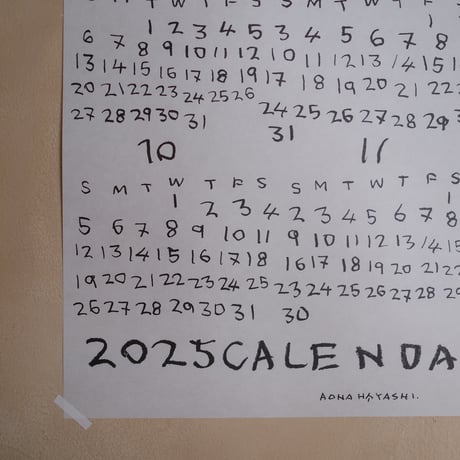 T W T F S S M T W T F
1
1 2 3 4 5 3 4 5 6 7 8
6 7 8 9 10 11 12 10 11 12 13 14 15 1
13 14 15 16 17 18 19 17 18 19 20 21 22
20 21 22 23 24 25 26 24 25 26 27 28 29
27 28 29 30 31 31
10 11
S M T W T F S S M T W T F S
1 2 3 4 1
5 6 7 8 9 10 11 2 3 4 5 6 7 8
12 13 14 15 16 17 18 9 10 11 12 13 14 15
19 20 21 22 23 24 25 16 17 18 19 20 21 22
26 27 28 29 30 31 23 24 25 26 27 28 29
30
2025CALENDA
AONA HAYASHI.